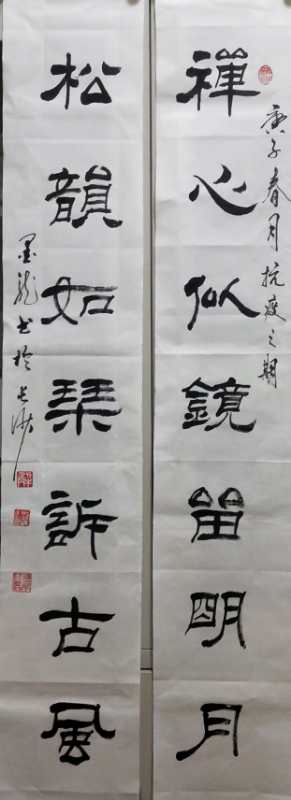 禅心似鏡留明月
庚子春月抗疫之期
松韻如琴訴古風
墨龍书於长沙